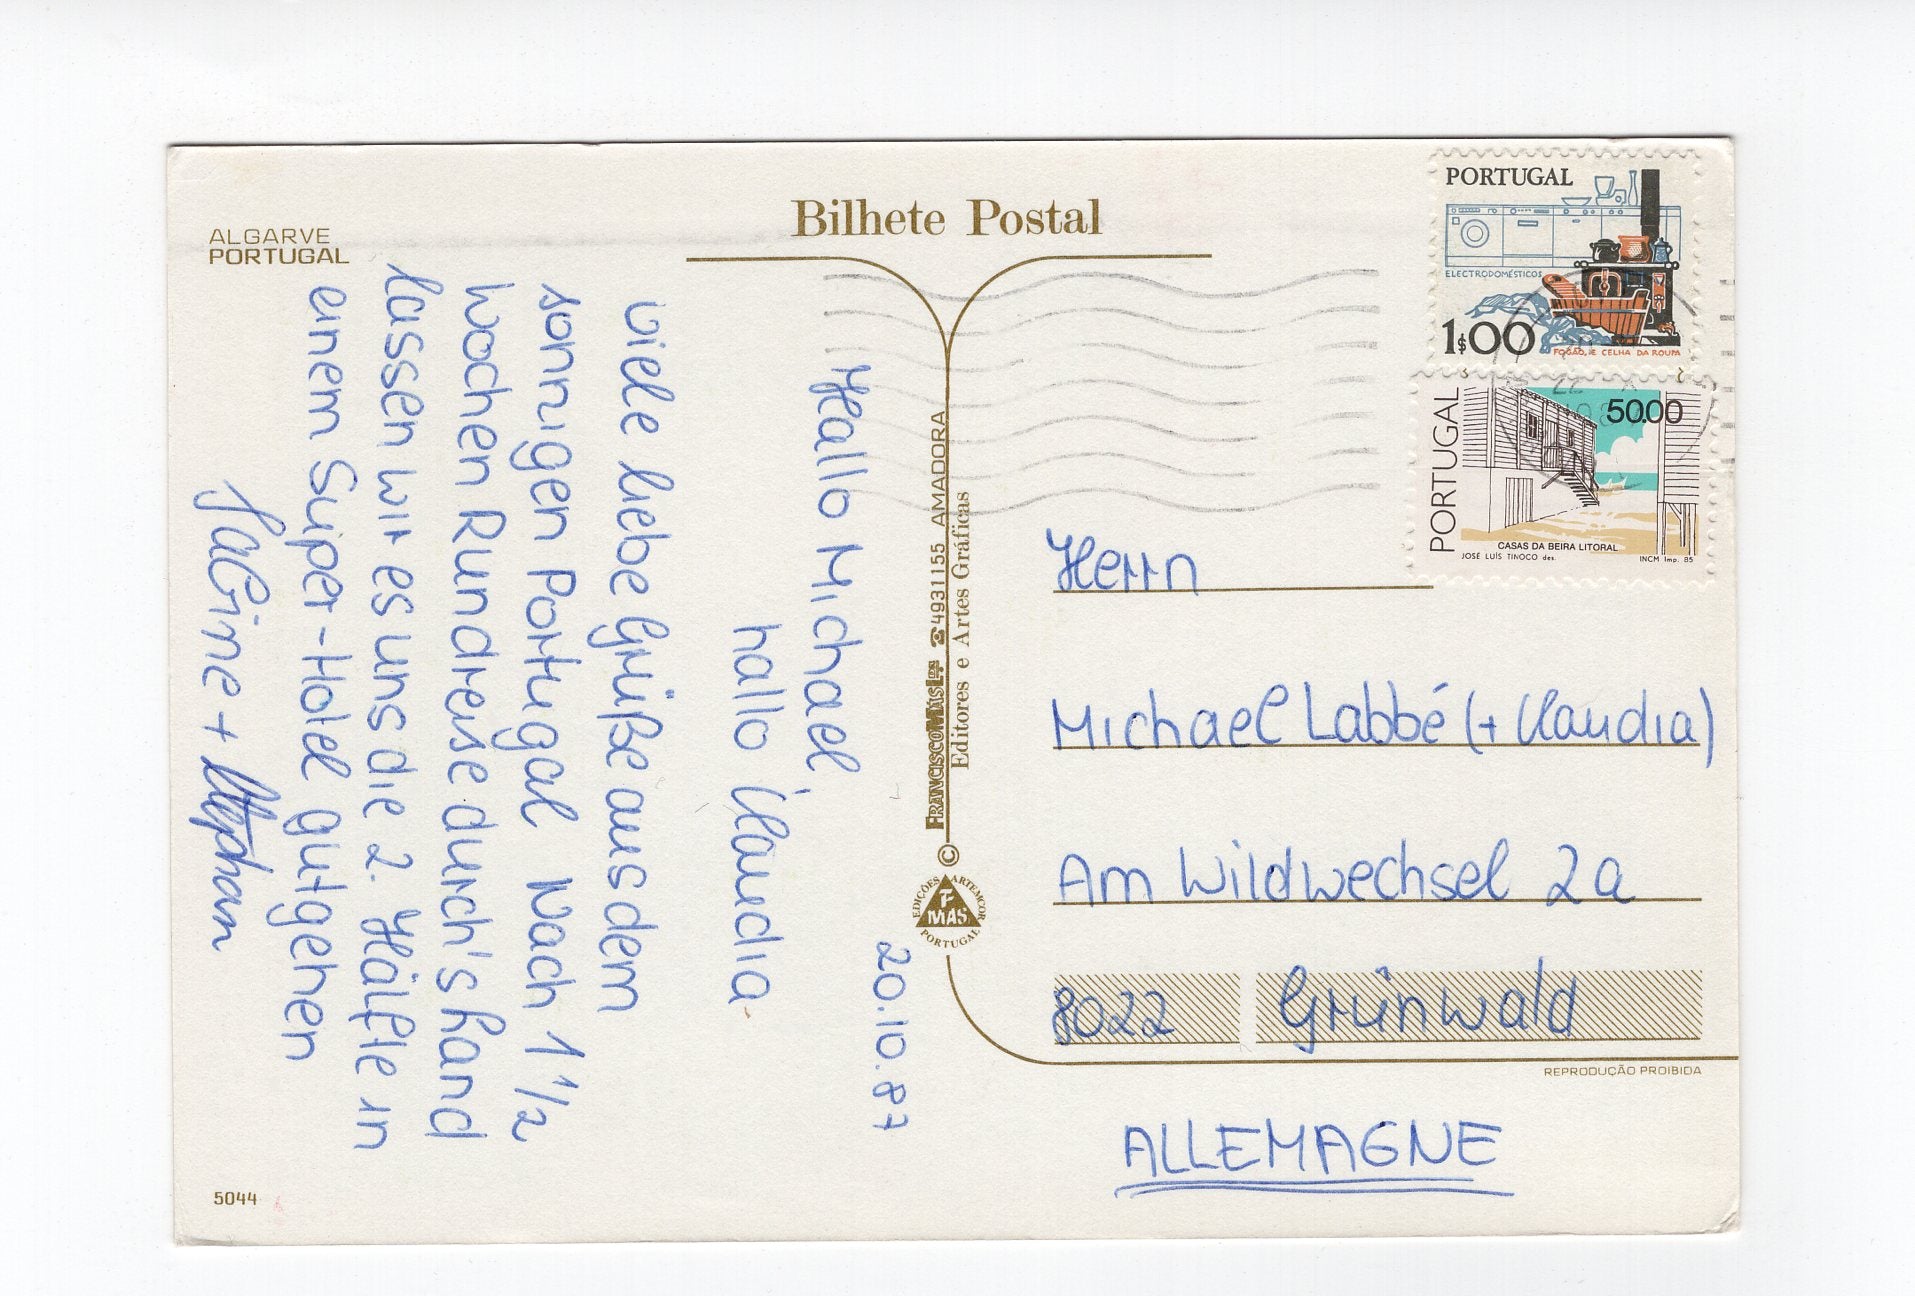 ALGARVE
PORTUGAL
Bilhete Postal
20.10.87
Hallo Michael,
hallo Claudia
viele liebe Grüße aus dem
sonnigen Portugal. Nach 1 1/2
Wochen Rundreise durch's Land
lassen wir es uns die 2. Hälfte in
einem Super-Hotel gutgehen
Sabine + Stephan
5044
FRANCISCO MÁS, L.DA ☎ 4931155 AMADORA
Editores e Artes Gráficas
©
EDIÇÕES ARTEMCOR
F
MÁS
PORTUGAL
PORTUGAL
ELECTRODOMÉSTICOS
1$00
FOGÃO, E CELHA DA ROUPA
PORTUGAL
50.00
CASAS DA BEIRA LITORAL
JOSÉ LUÍS TINOCO des.
INCM Imp. 85
Herrn
Michael Labbé (+ Claudia)
Am Wildwechsel 2a
8022 Grünwald
REPRODUÇÃO PROIBIDA
ALLEMAGNE